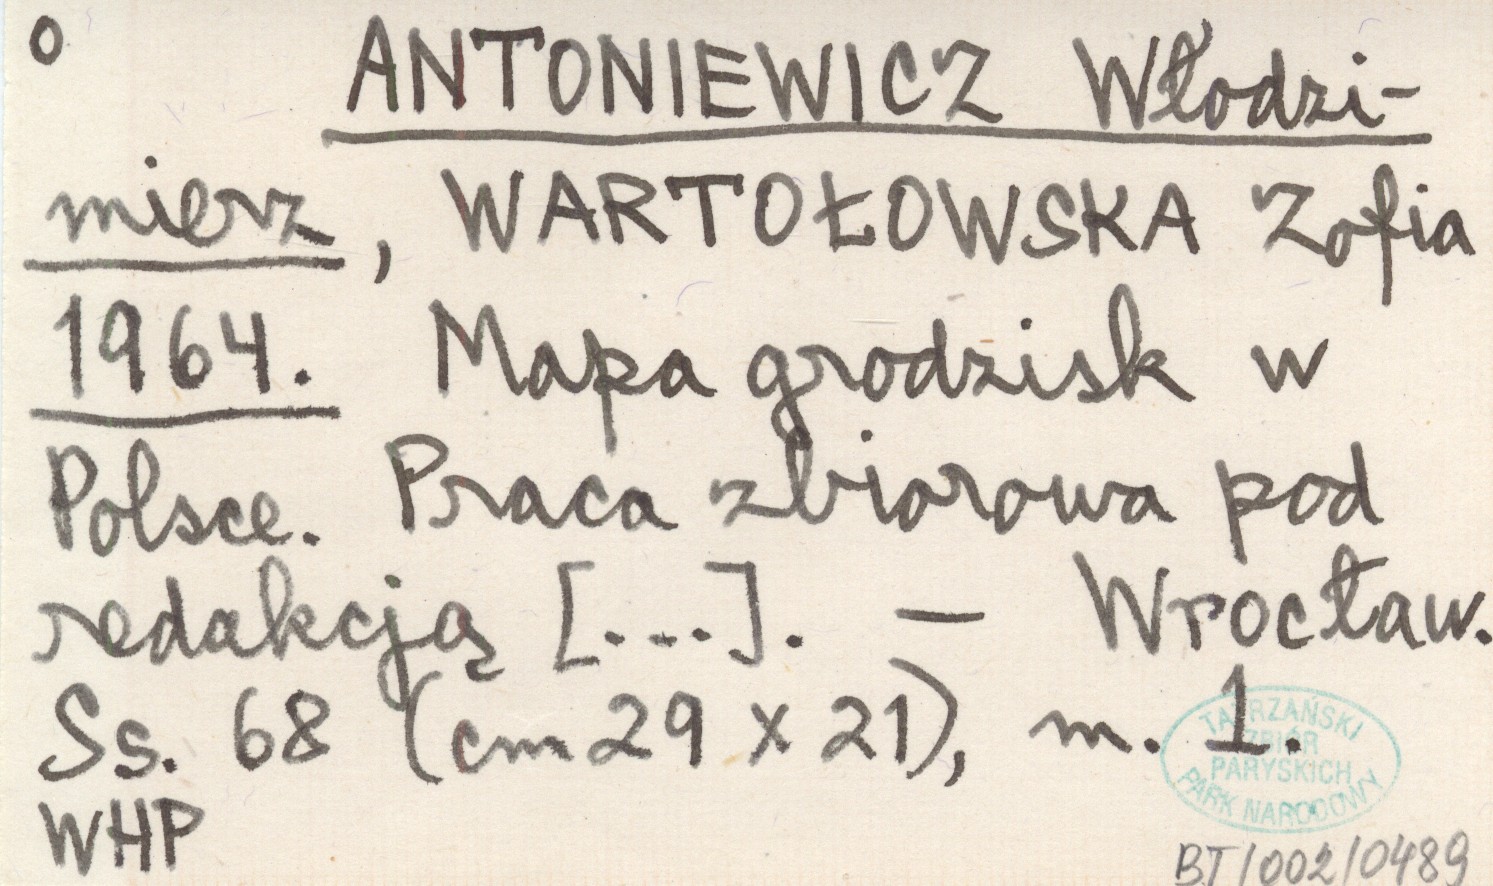 o
ANTONIEWICZ Włodzi-
mierz, WARTOŁOWSKA Zofia
1964. Mapa grodzisk w
Polsce. Praca zbiorowa pod
redakcją [...]. — Wrocław.
Ss. 68 (cm 29 x 21), m. 1.
WHP
TATRZAŃSKI
ZBIÓR
PARYSKICH
PARK NARODOWY
BT/002/0489